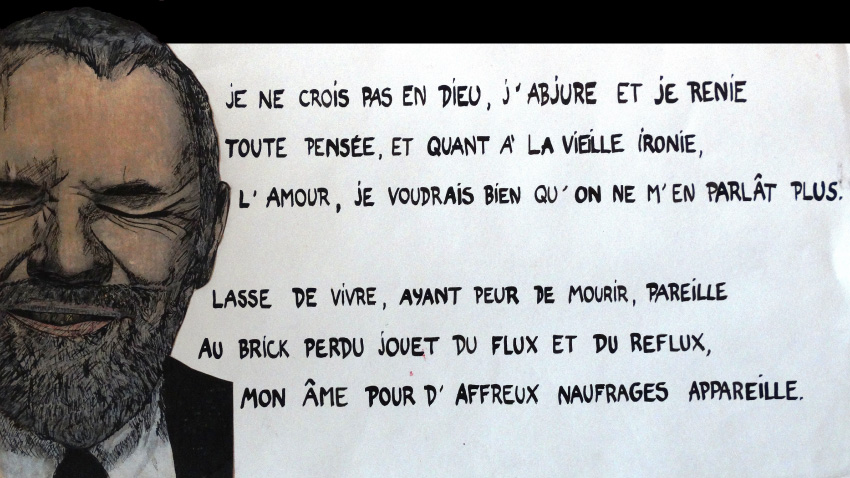 JE NE CROIS PAS EN DIEU, J'ABJURE ET JE RENIE
TOUTE PENSÉE, ET QUANT À LA VIEILLE IRONIE,
L'AMOUR, JE VOUDRAIS BIEN QU'ON NE M'EN PARLÂT PLUS.
LASSE DE VIVRE, AYANT PEUR DE MOURIR, PAREILLE
AU BRICK PERDU JOUET DU FLUX ET DU REFLUX,
MON ÂME POUR D'AFFREUX NAUFRAGES APPAREILLE.